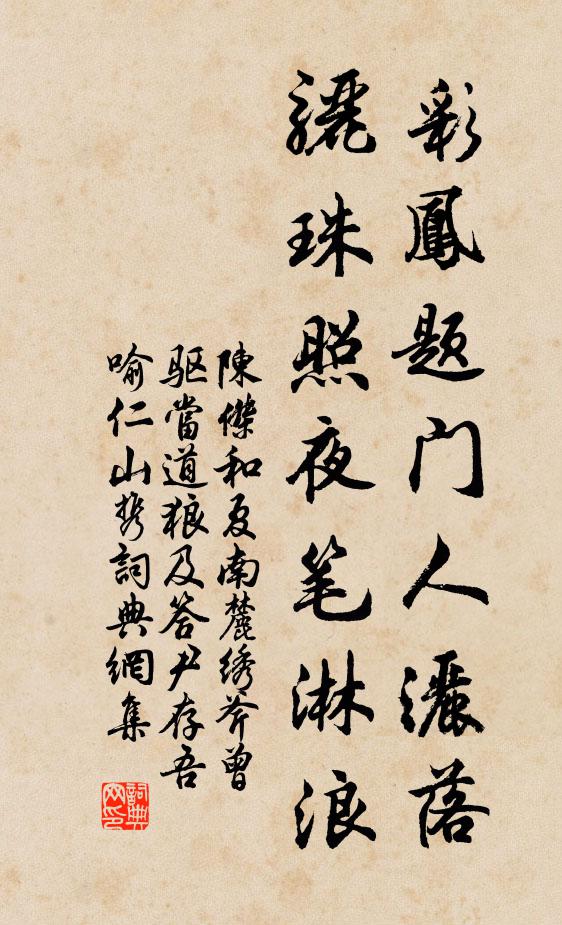 彩鳳題門人灑落
驪珠照夜笔淋浪
陳傑和夏南麓绣斧曾
驱當道狼及答尹存吾
喻仁山携詞典網集
詞典网印